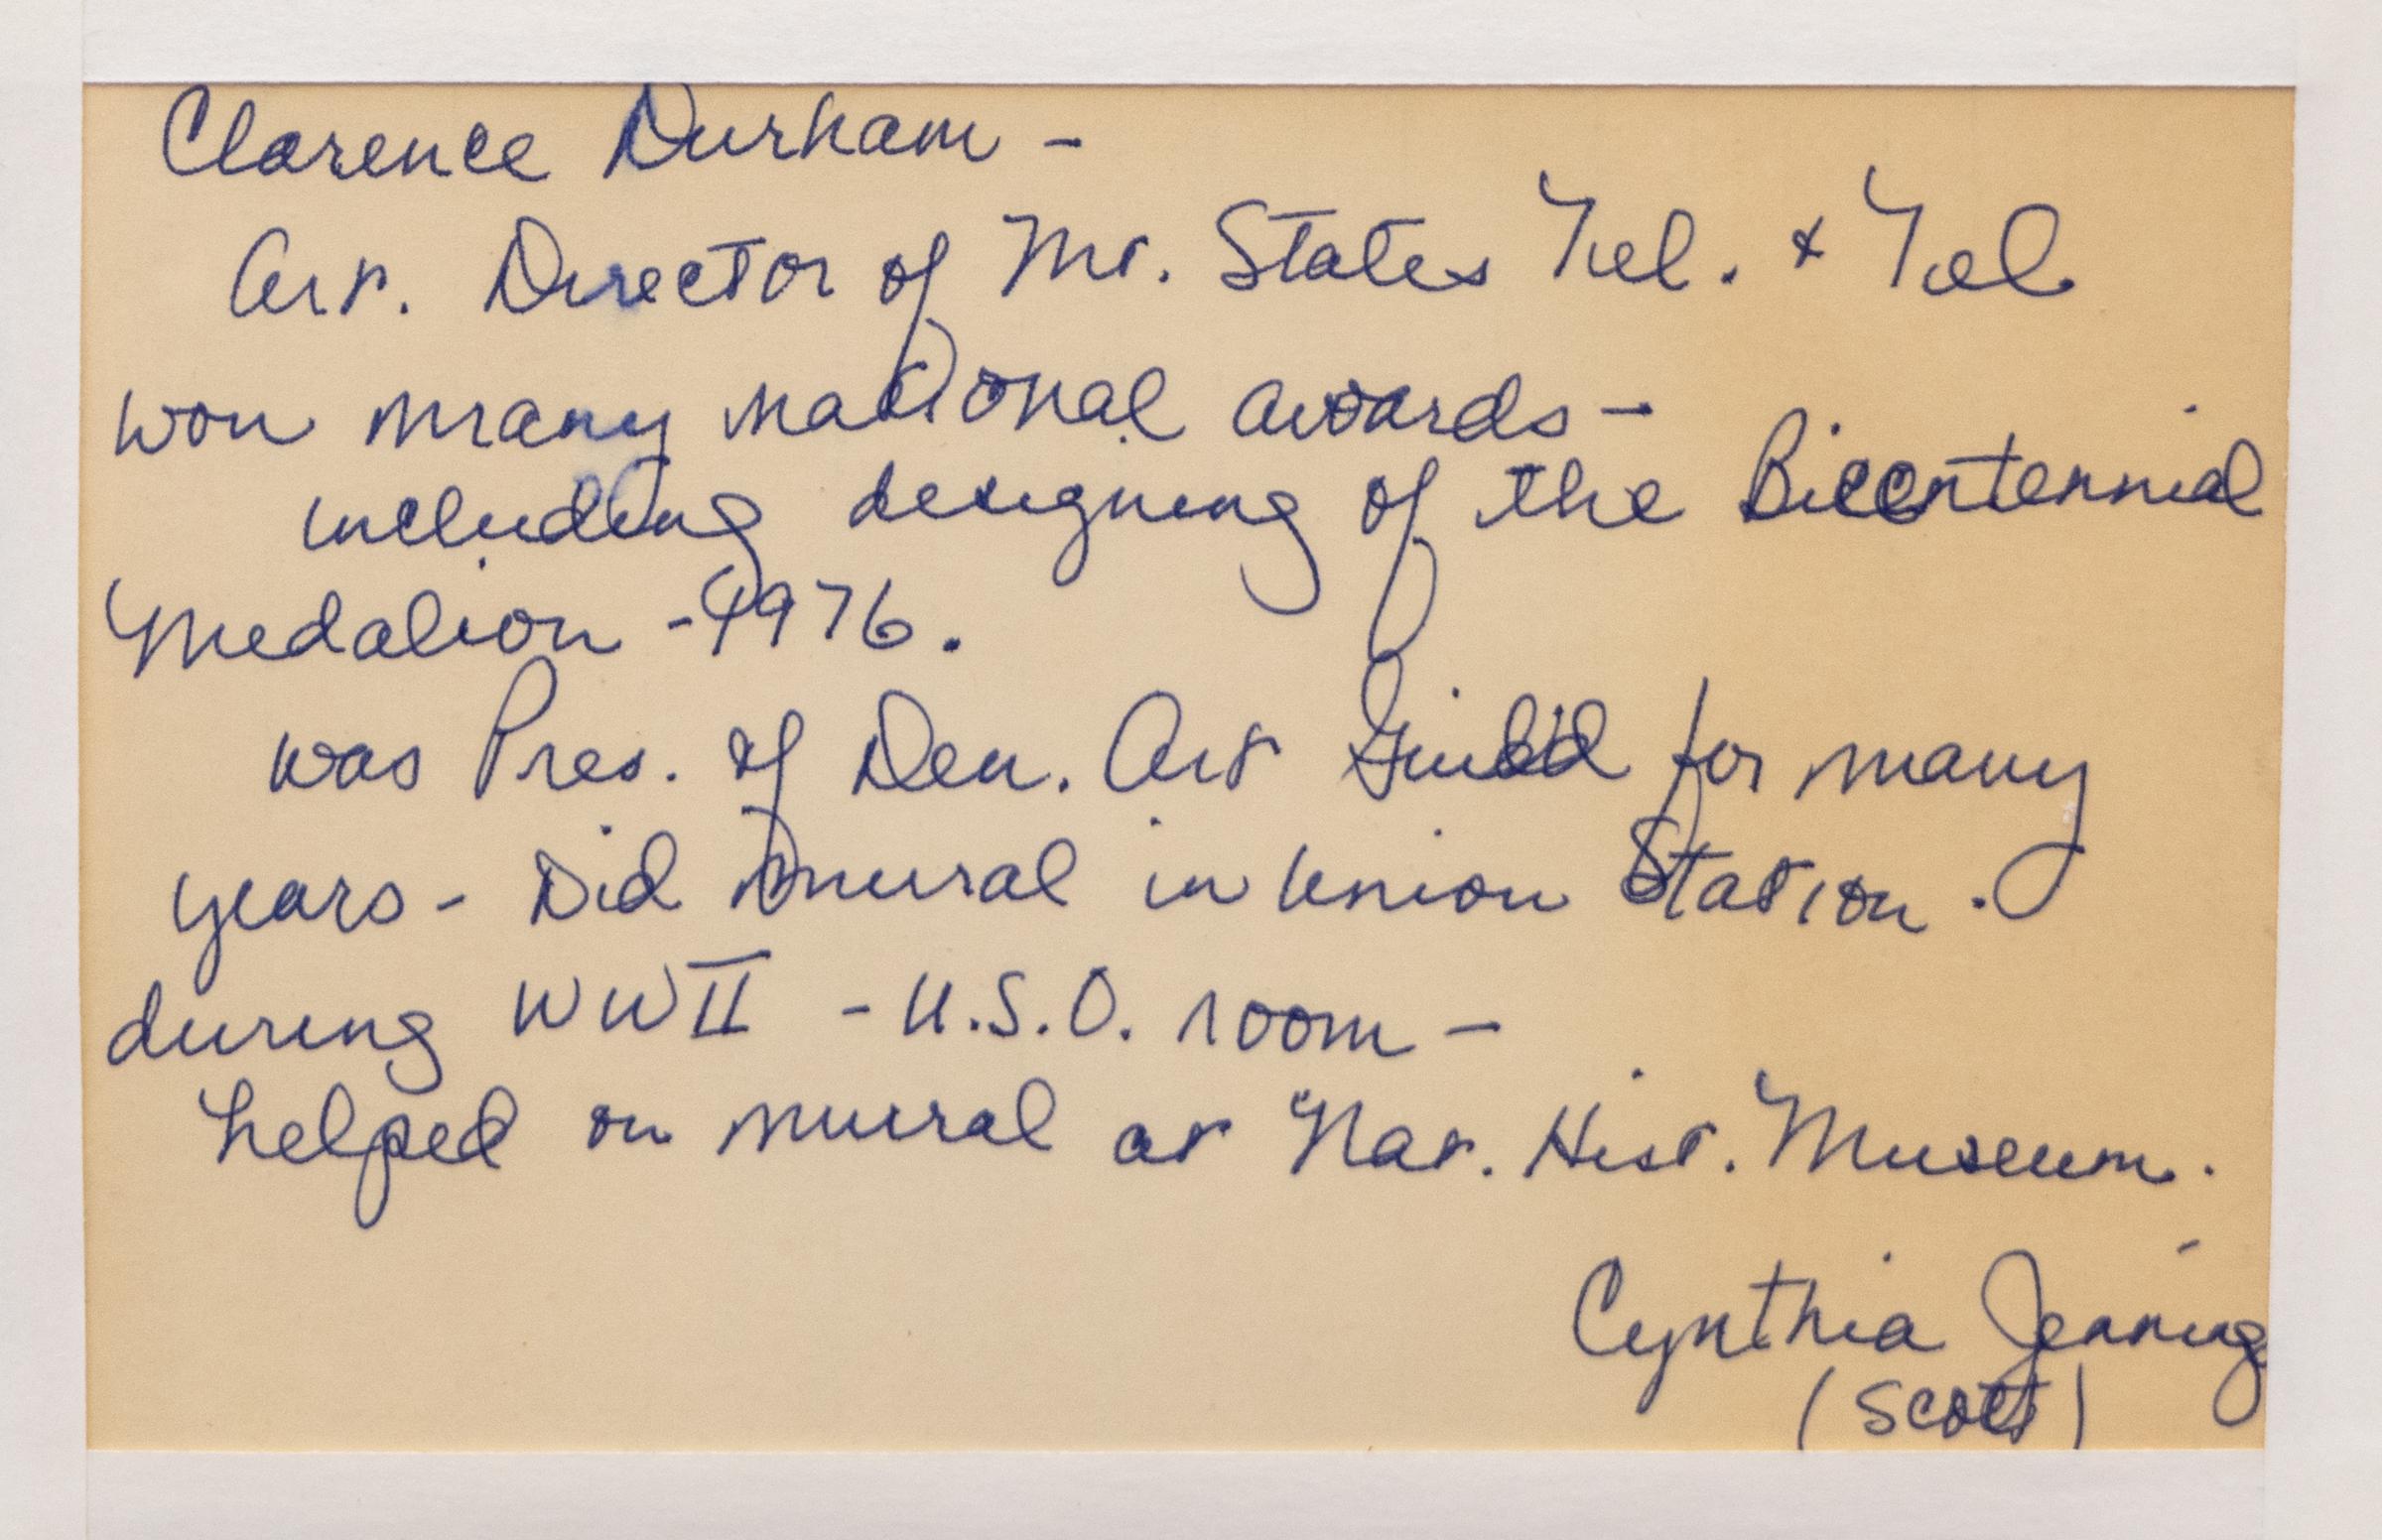 Clarence Durham -
Art. Director of Mt. States Tel. & Tel.
won many national awards -
including designing of the Bicentennial
Medalion - 1976.
was Pres. of Den. Art Guild for many
years - Did mural in Union Station.
during WWII - U.S.O. room -
helped on mural at Nat. Hist. Museum.
Cynthia Jennings
(Scott)